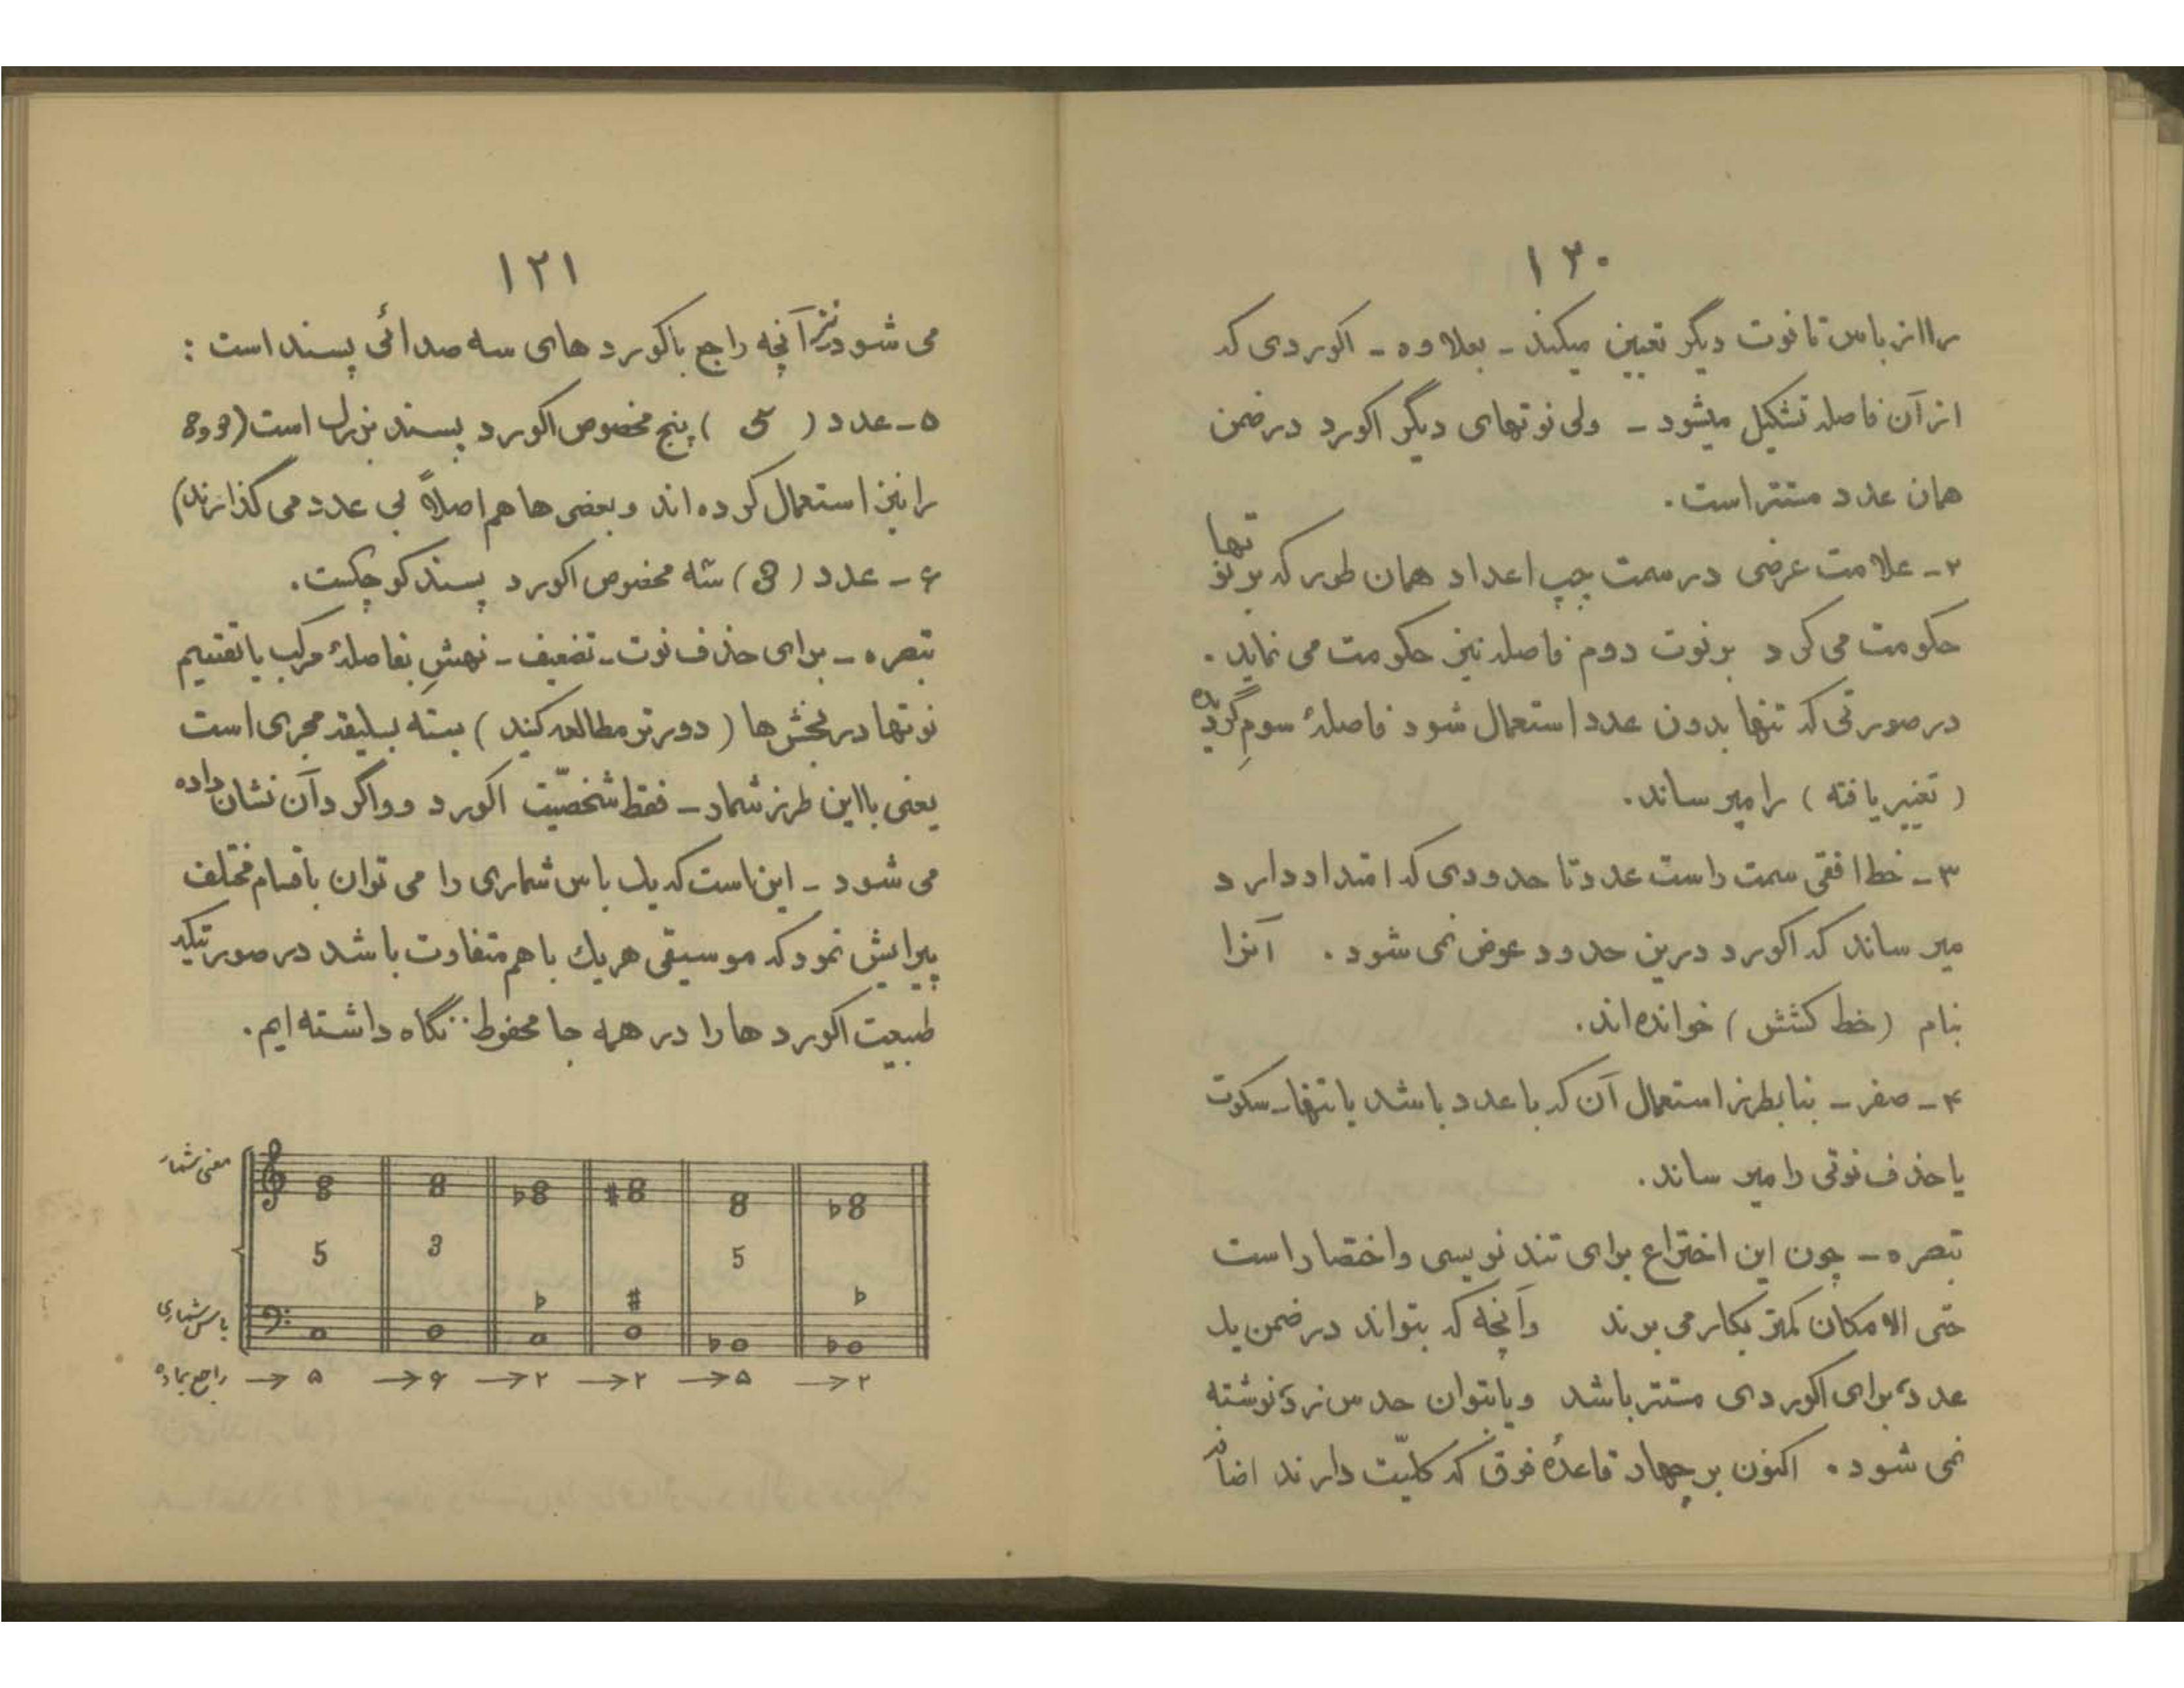 ۱۲۰
را از باس تا نوت دیگر تعیین میکند - بعلاوه - اکوردی که
از آن فاصله تشکیل میشود - ولی نوتهای دیگر اکورد در ضمن
همان عدد مستتر است.
۲- علامت عرضی در سمت چپ اعداد همان طور که بر نوتها
حکومت می کرد بر نوت دوم فاصله نیز حکومت می نماید.
در صورتی که تنها بدون عدد استعمال شود فاصلهٔ سومِ
( تغییر یافته ) را میرساند.
۳- خط افقی سمت راست عدد تا حدودی که امتداد دارد
میرساند که اکورد درین حدود عوض نمی شود. آنرا
بنام (خط کشش) خوانده‌اند.
۴- صفر - بنا بطرز استعمال آن که با عدد باشد یا تنها - سکوت
یا حذف نوتی را میرساند.
تبصره - چون این اختراع برای تند نویسی و اختصار است
حتی الامکان کمتر بکار می برند وآنچه که بتواند در ضمن یک
عدد برای اکوردی مستتر باشد و یا بتوان حدس زد نوشته
نمی شود. اکنون بر چهار قاعدهٔ فوق که کلیّت دارند اضافه
۱۲۱
می شود نیز آنچه راجع باکورد های سه صدائی پسند است :
۵- عدد ( 5 ) پنج مخصوص اکورد پسند بزرگ است (3 و 8
را نیز استعمال کرده اند و بعضی ها هم اصلاً بی عدد می گذارند)
۶- عدد (3) سه مخصوص اکورد پسند کوچکست.
تبصره - برای حذف نوت - تضعیف - نهشِ بفاصلهٔ مرکب یا تقسیم
نوتها در بخش ها ( دورتر مطالعه کنید ) بسته بسلیقه مجری است
یعنی با این طرز شمار - فقط شخصیّت اکورد و واگرد آن نشان داده
می شود - این است که یک باس شماری را می توان باقسام مختلف
پیرایش نمود که موسیقی هریک با هم متفاوت باشد در صورتیکه
طبیعت اکورد ها را در همه جا محفوظ نگاه داشته ایم.
معنی شمار
5 3 5
باس شماری
راجع بماده → ۵ → ۶ → ۲ → ۲ → ۵ → ۲